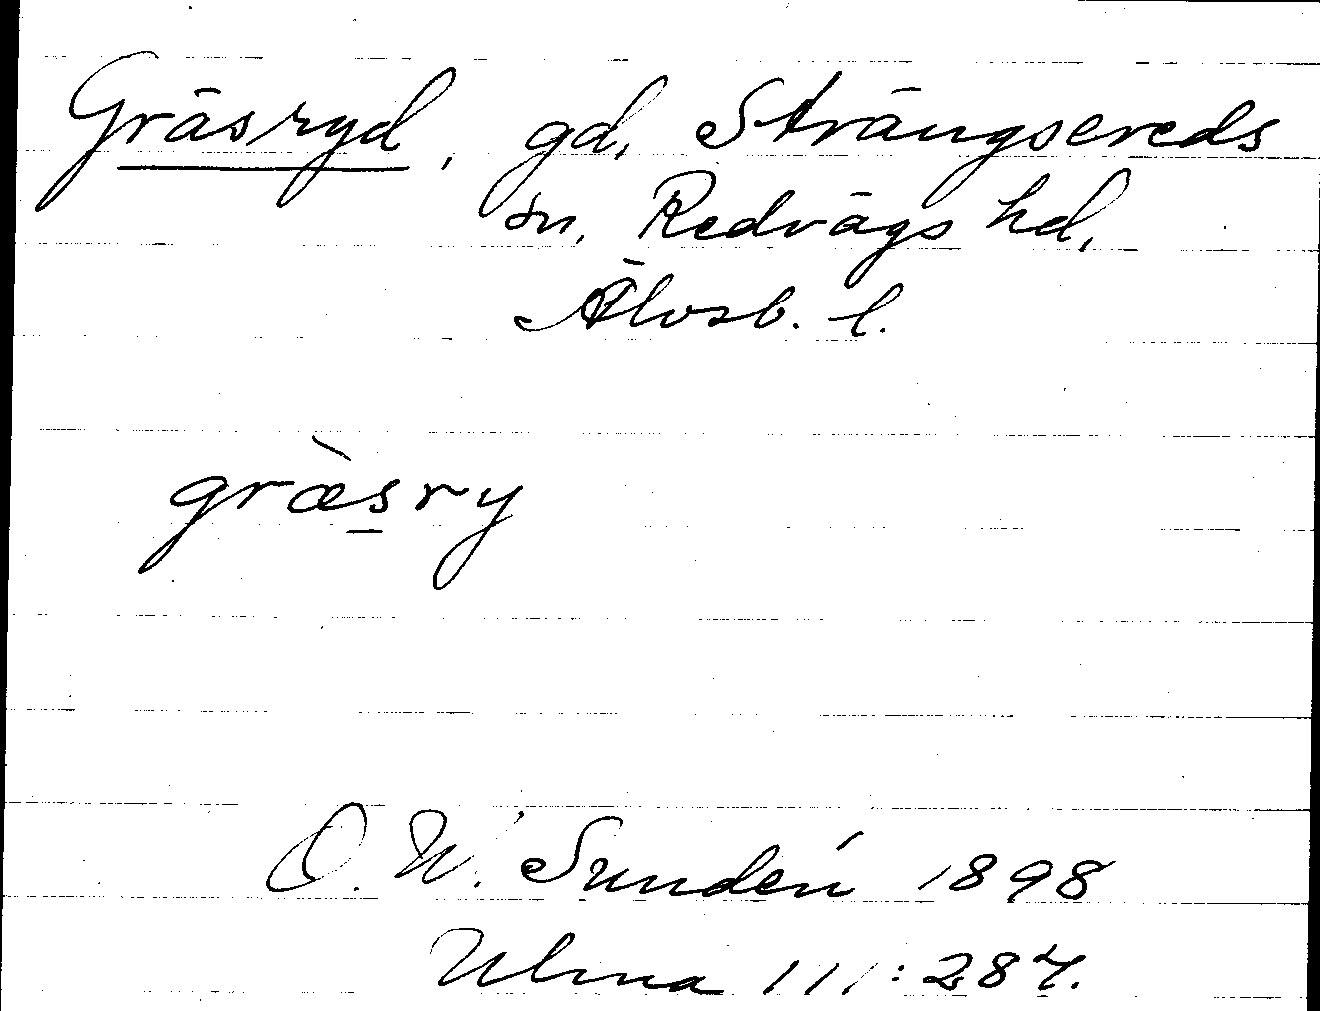 Gräsryd, gd, Strängsereds
sn, Redvägs hd,
Älvsb. l.
græ̀s̲ry
O. W. Sundén 1898
Ulma 111:287.